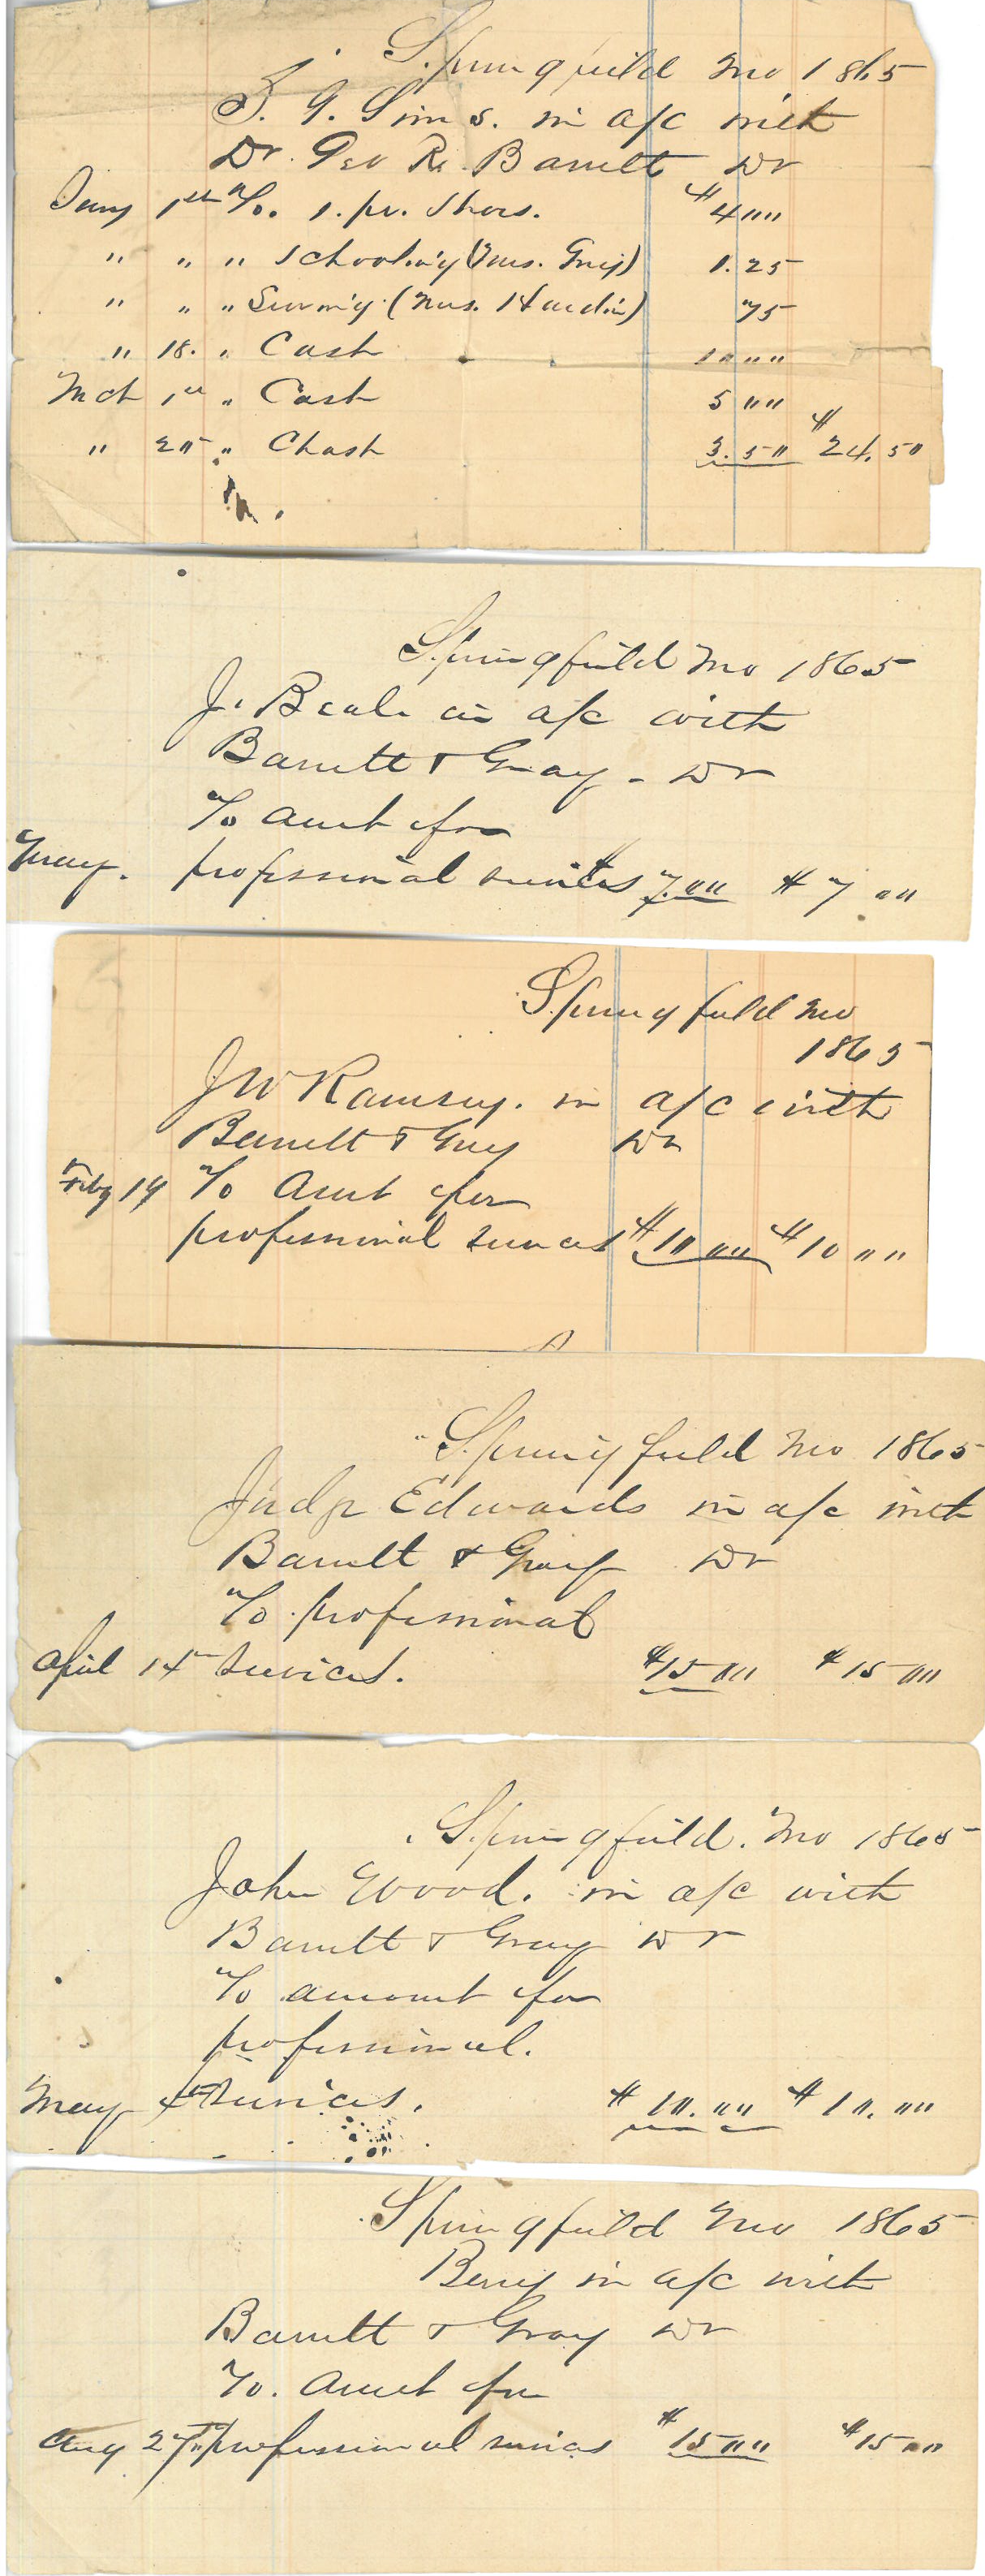 Springfield Mo 1865
S. G. Sims. in a/c with
Dr. Geo R. Barrett Dr
Jany 1st To. 1. pr. Shoes. $4 00
" " " Schooling (Mrs. Gray) 1.25
" " " Sewing (Mrs. Hardin) 75
" 18. " Cash 10 00
Mch 1st " Cash 5 00
" 20 " Chash 3.50 $24.50
Springfield Mo 1865
J. Beale in a/c with
Barrett & Gray - Dr
To Amt for
May. professional services 7.00 $7 00
Springfield Mo
1865
J W Ramsey. in a/c with
Barrett & Gray Dr
Feby 14 To Amt for
professional services $10 00 $10 00
Springfield Mo 1865
Judge Edwards in a/c with
Barrett & Gray Dr
To professional
April 14th Services. $15 00 $15 00
Springfield. Mo 1865
John Wood. in a/c with
Barrett & Gray Dr
To amount for
professional.
May Services. $10.00 $10.00
Springfield Mo 1865
Berry in a/c with
Barrett & Gray Dr
To. Amt for
Aug 27th professional services $15 00 $15 00